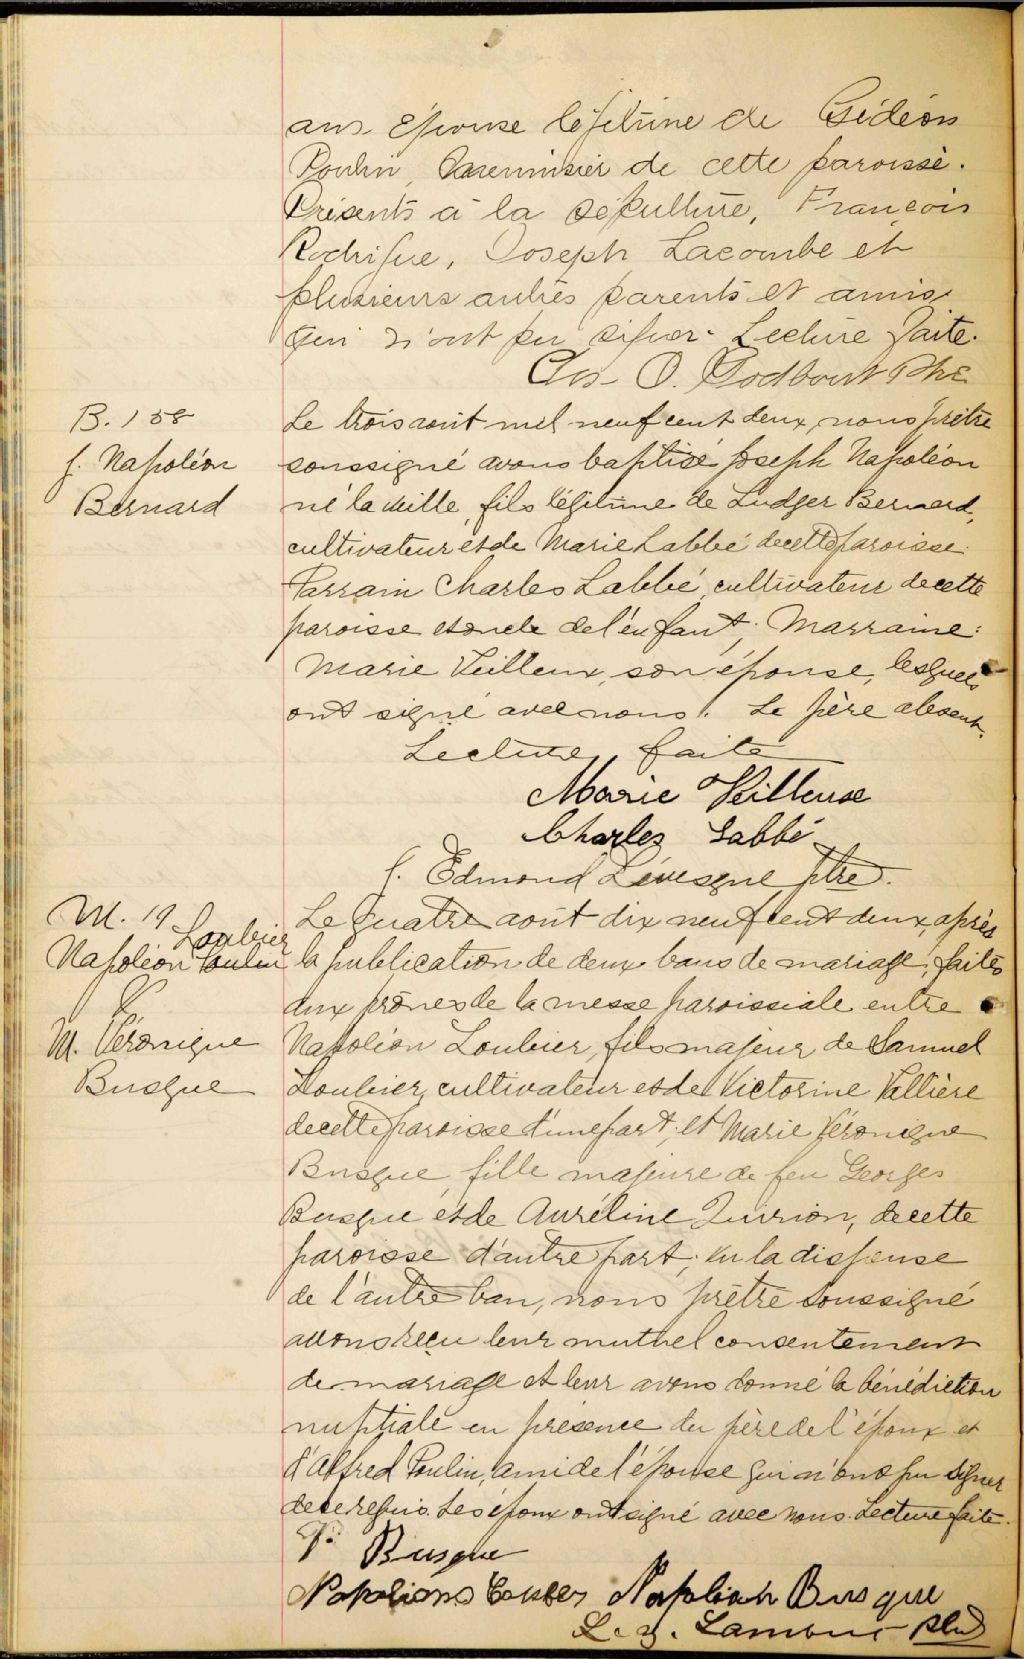 ans. épouse légitime de Gédéon
Poulin, menuisier de cette paroisse.
Présents à la sépulture, François
Rodrigue, Joseph Lacombe et
plusieurs autres parents et amis
qui n'ont pu signer. Lecture faite.
Chs. O. Godbout Ptre
B. 158
J. Napoléon
Bernard
Le trois août mil neuf cent deux, nous prêtre
soussigné avons baptisé Joseph Napoléon
né la veille, fils légitime de Ludger Bernard,
cultivateur et de Marie Labbé de cette paroisse.
Parrain Charles Labbé, cultivateur de cette
paroisse et oncle de l'enfant; Marraine:
Marie Veilleux, son épouse, lesquels
ont signé avec nous. Le père absent.
Lecture faite
Marie Veilleux
Charles Labbé
J. Edmond Lévesque ptre.
M. 19
Loubier
Napoléon Poulin
&
M. Véronique
Busque
Le quatre août dix neuf cent deux, après
la publication de deux bans de mariage, faites
aux prônes de la messe paroissiale entre
Napoléon Loubier, fils majeur de Samuel
Loubier, cultivateur et de Victorine Vallière
de cette paroisse d'une part; et Marie Véronique
Busque fille majeure de feu Georges
Busque et de Auréline Quirion, de cette
paroisse d'autre part; vu la dispense
de l'autre ban, nous prêtre soussigné
avons reçu leur mutuel consentement
de mariage et leur avons donné la bénédiction
nuptiale en présence du père de l'époux et
d'Alfred Poulin, ami de l'épouse qui n'ont pu signer
de ce requis. Les époux ont signé avec nous. Lecture faite.
V. Busque
Napoléon Busque